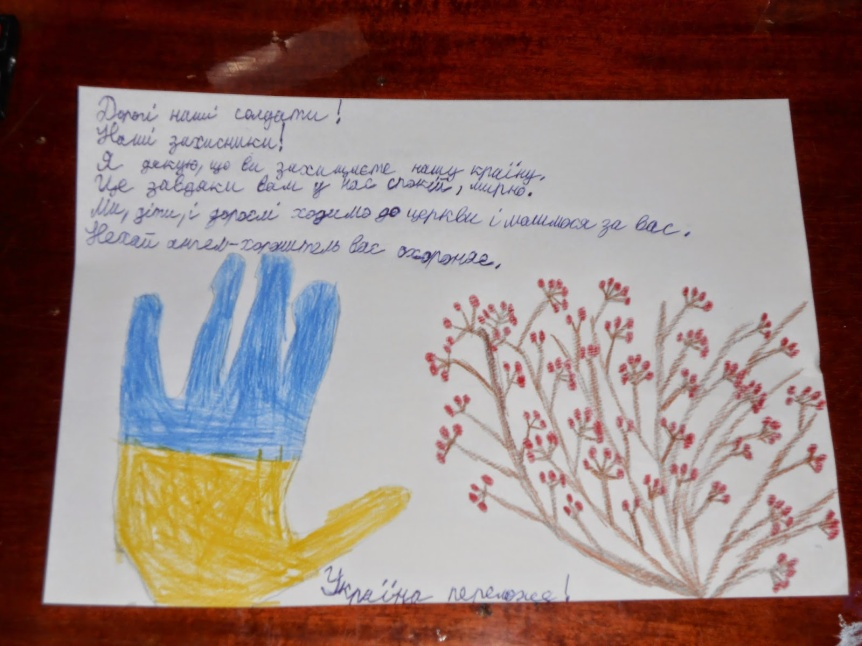 Дорогі наші солдати!
Наші захисники!
Я дякую, що ви захищаєте нашу країну.
Це завдяки вам у нас спокій, мирно.
Ми, діти, і дорослі ходимо до церкви і молимося за вас.
Нехай ангел-хоронитель вас охороняє.
Україна переможе!